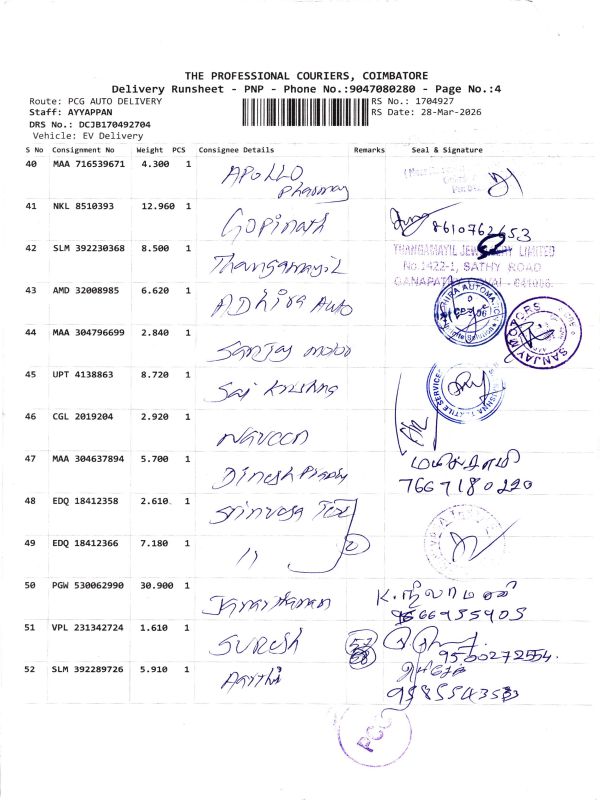 THE PROFESSIONAL COURIERS, COIMBATORE
Delivery Runsheet - PNP - Phone No.:9047080280 - Page No.:4
Route: PCG AUTO DELIVERY RS No.: 1704927
Staff: AYYAPPAN RS Date: 28-Mar-2026
DRS No.: DCJB170492704
Vehicle: EV Delivery
S No Consignment No Weight PCS Consignee Details Remarks Seal & Signature
40 MAA 716539671 4.300 1 APOLLO pharmay
41 NKL 8510393 12.960 1 Gopinath 8610762653
42 SLM 392230368 8.500 1 Thangamayil THANGAMAYIL JEWELLERY LIMITED
No.1422-1, SATHY ROAD
43 AMD 32008985 6.620 1 ADhira Auto
44 MAA 304796699 2.840 1 Sanjay motor SANJAY MOTORS
45 UPT 4138863 8.720 1 Sai Krishna
46 CGL 2019204 2.920 1 Naveen
47 MAA 304637894 5.700 1 Dinesh
7667180220
48 EDQ 18412358 2.610 1 Srinivasa Tex
49 EDQ 18412366 7.180 1 11 2
50 PGW 530062990 30.900 1 K.
51 VPL 231342724 1.610 1 SURESH 9500272554.
52 SLM 392289726 5.910 1 Aarthi
PCG